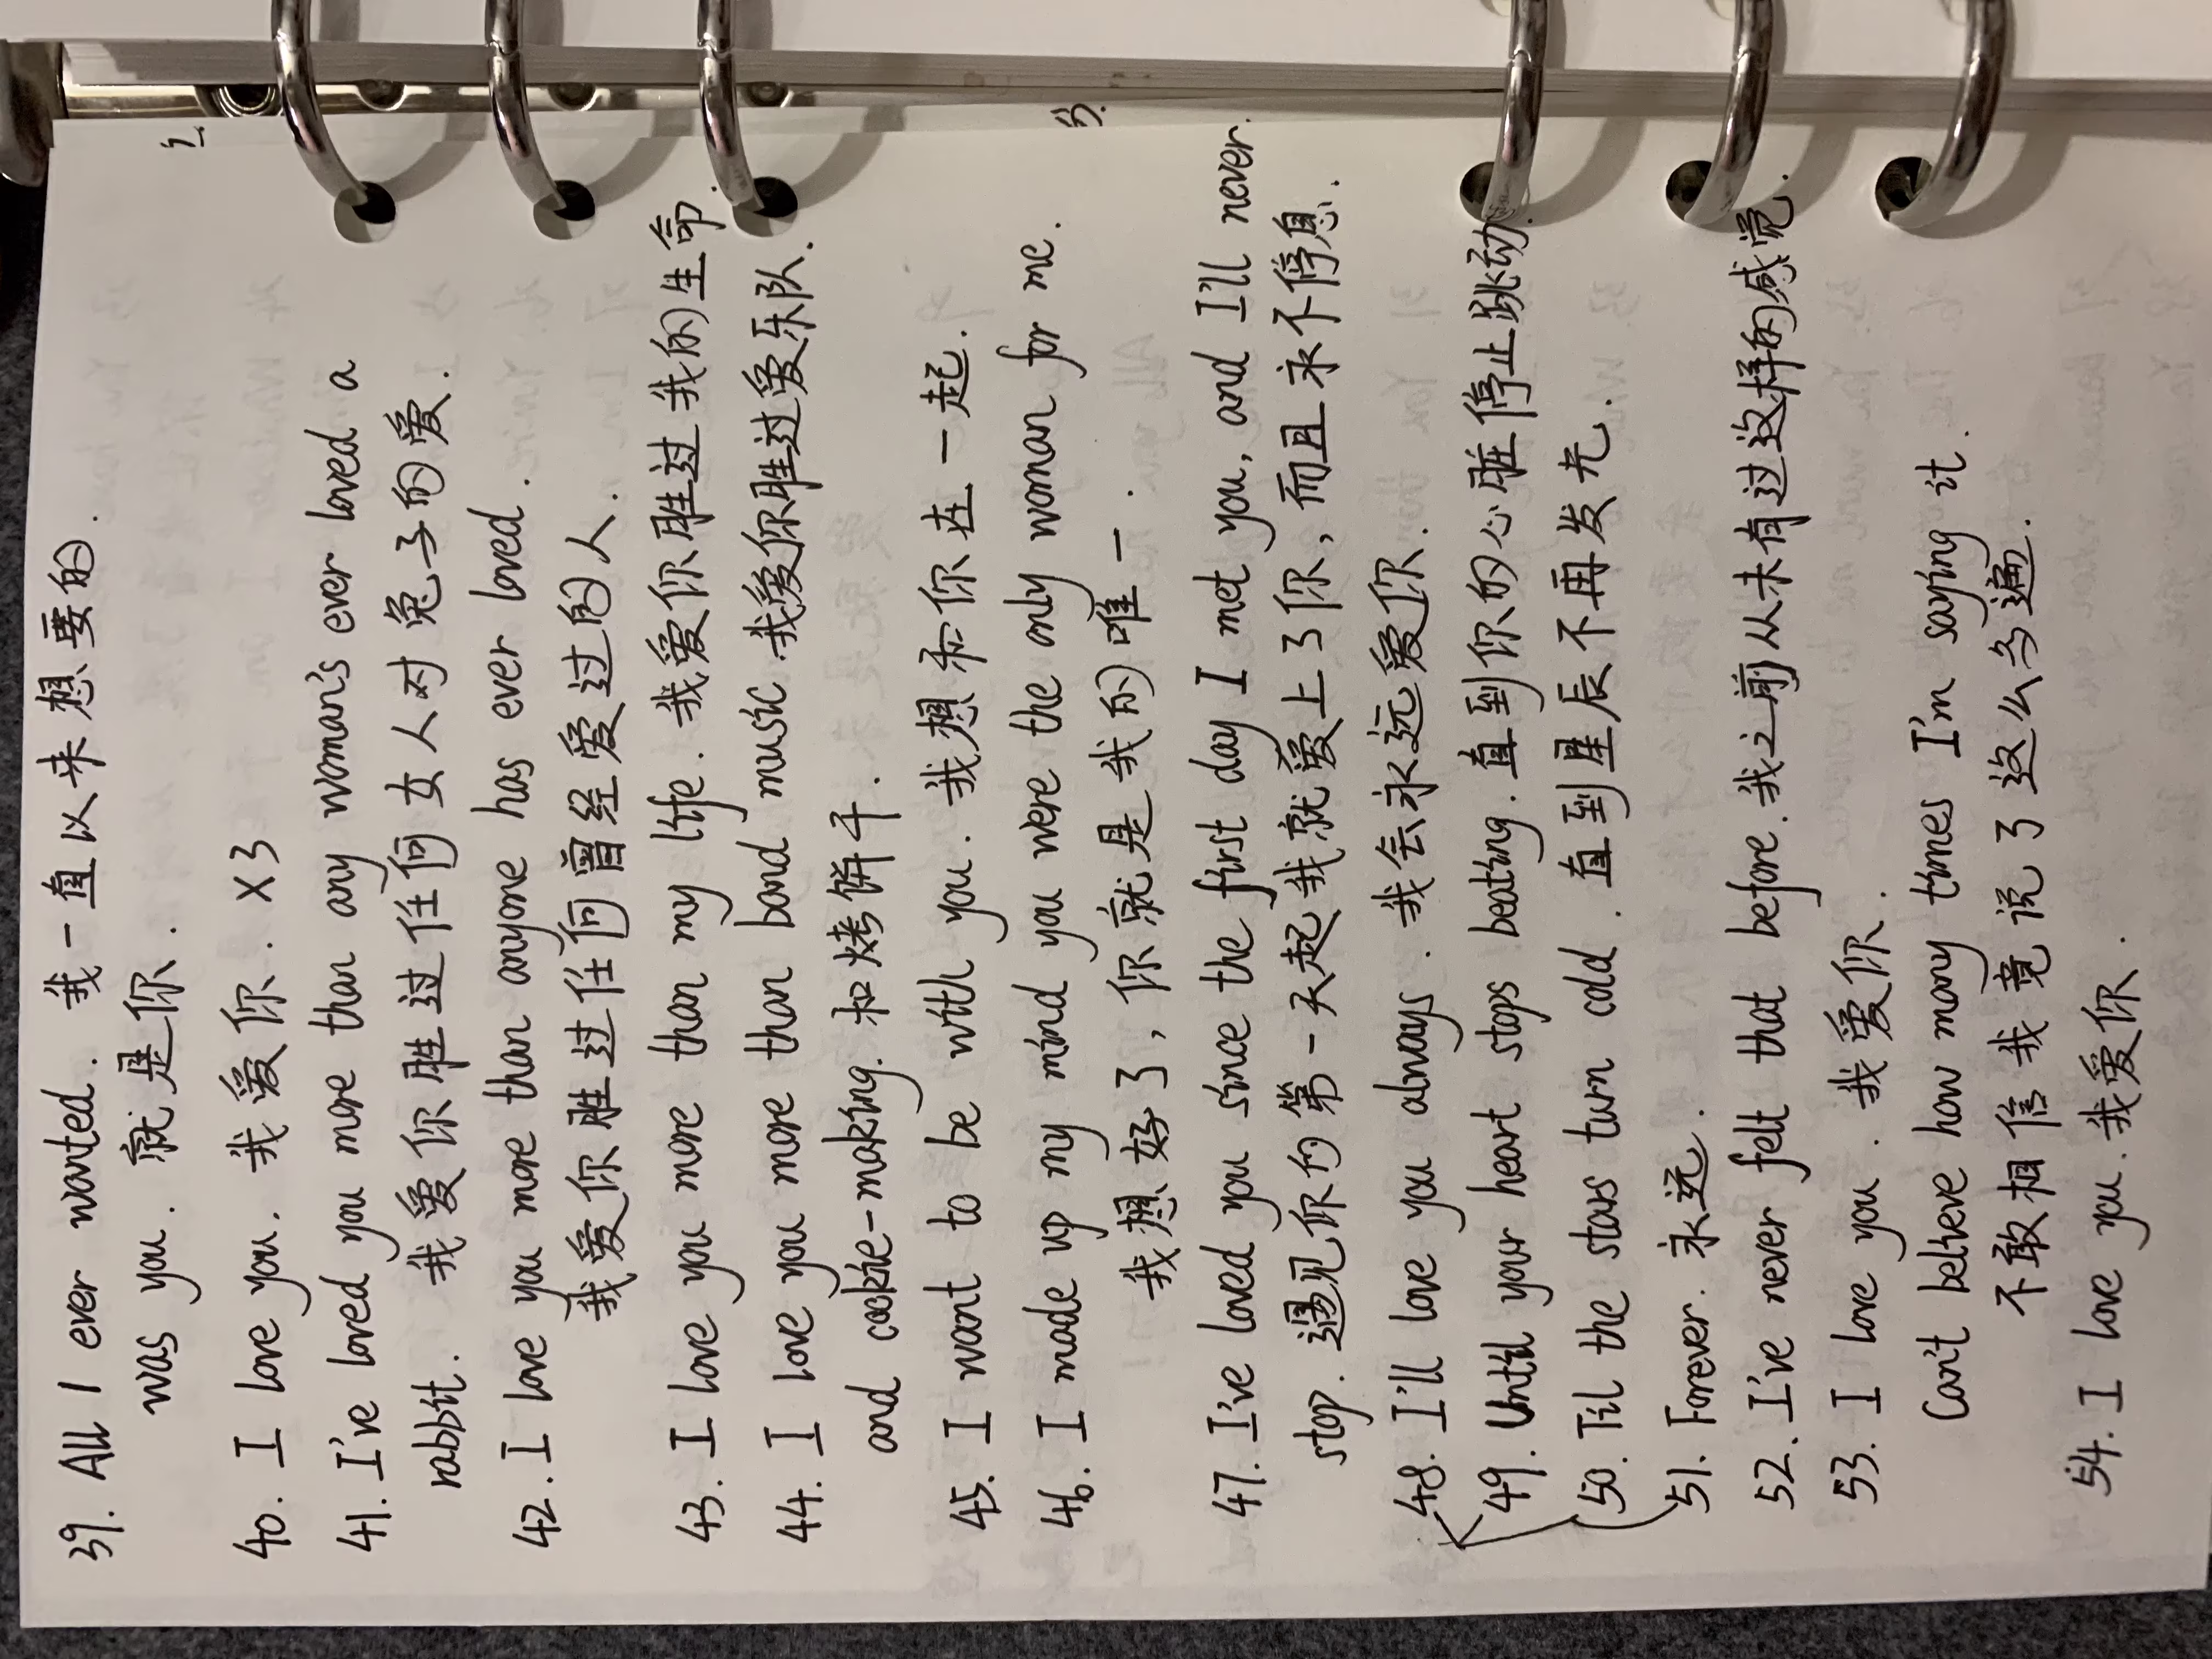 39. All I ever wanted. 我一直以来想要的.
was you. 就是你.
40. I love you. 我爱你. ×3
41. I've loved you more than any woman's ever loved a
rabbit. 我爱你胜过任何女人对兔子的爱.
42. I love you more than anyone has ever loved.
我爱你胜过任何曾经爱过的人.
43. I love you more than my life. 我爱你胜过我的生命.
44. I love you more than band music. 我爱你胜过爱乐队.
and cookie-making. 和烤饼干.
45. I want to be with you. 我想和你在一起.
46. I made up my mind you were the only woman for me.
我想好了, 你就是我的唯一.
47. I've loved you since the first day I met you, and I'll never.
stop. 遇见你的第一天起我就爱上了你, 而且永不停息.
48. I'll love you always. 我会永远爱你.
49. Until your heart stops beating. 直到你的心脏停止跳动.
50. Til the stars turn cold. 直到星辰不再发光.
51. Forever. 永远.
52. I've never felt that before. 我之前从未有过这样的感觉.
53. I love you. 我爱你.
Can't believe how many times I'm saying it.
不敢相信我竟说了这么多遍.
54. I love you. 我爱你.